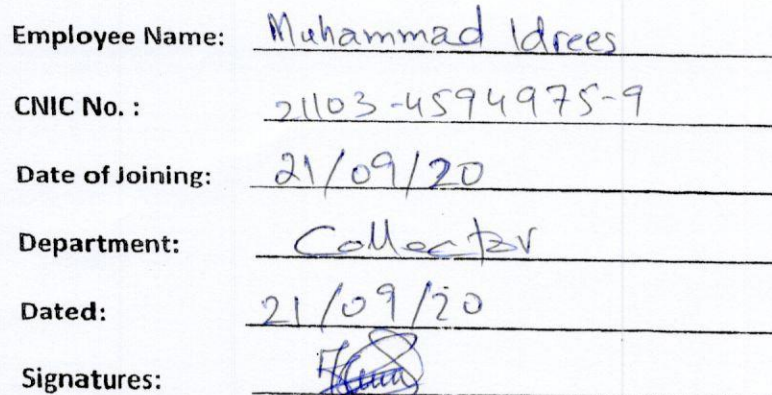 Employee Name: Muhammad Idrees
CNIC No. : 21103-4594975-9
Date of Joining: 21/09/20
Department: Collector
Dated: 21/09/20
Signatures: